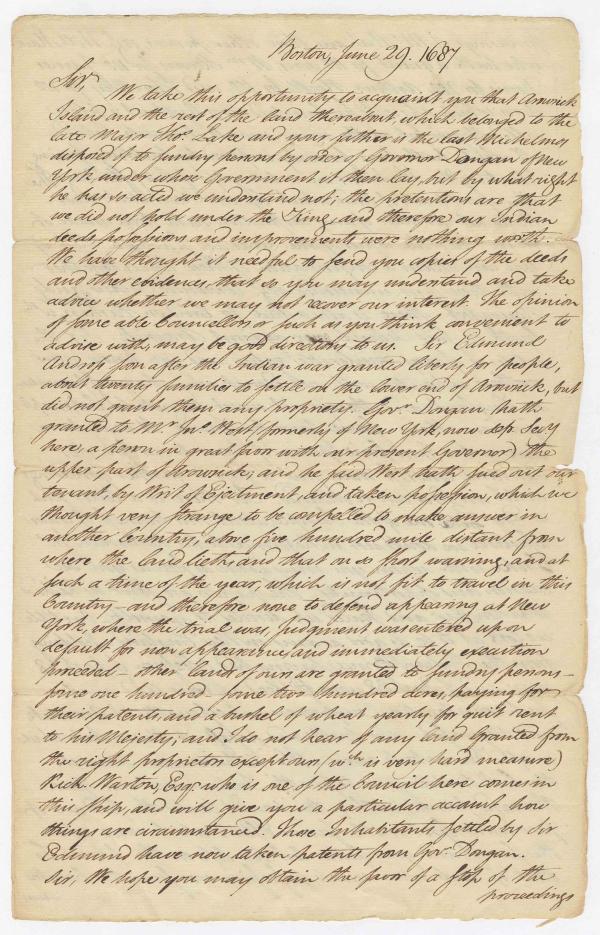 Boston, June 29. 1687
Sir,
We take this opportunity to acquaint you that Arrowick
Island and the rest of the land thereabout, which belonged to the
late Major Tho.s Lake and your father is the last Michelmos
disposed of to sundry persons by order of Governor Dongan of New
York under whose Government it then lay, but by what right
he has so acted we understand not; the pretentions are that
we did not hold under the King, and therefore our Indian
deeds possessions and improvements were nothing worth.
We have thought it needful to send you copies of the deeds
and other evidences, that so you may understand and take
advice whether we may not recover our interest. The opinion
of some able Councellors or such as you think convenient to
advise with, may be good directions to us. Sir Edmund
Andross soon after the Indian war granted liberty for people,
about twenty families to settle on the lower end of Arrowick, but
did not grant them any propriety. Gov.r Dongan hath
granted to M.r Jn.o West (formerly of New York, now dep. Secy
here, a person in great favor with our present Governor) the
upper part of Arrowick, and he said West hath sued out our
tenant, by Writ of Ejectment, and taken possession, which we
thought very strange to be compelled to make answer in
another Country, above five hundred mile distant from
where the land lieth, and that on so short warning, and at
such a time of the year, which is not fit to travel in this
Country – and therefore none to defend appearing at New
York, where the trial was, Judgment was entered upon
default for non appearance and immediately execution
proceeded – other lands of ours are granted to sundry persons –
some one hundred – some two hundred acres, paying for
their patents, and a bushel of wheat yearly for quit rent
to his Majesty; and I do not hear of any land granted from
the right proprietors except ours (w.ch is very hard measure)
Rich. Warton, Esq.r who is one of the Council here comes in
this ship, and will give you a particular account how
things are circumstanced. Those Inhabitants settled by Sir
Edmund have now taken patents from Gov.r Dongan.
Sir, We hope you may obtain the favor of a stop of the
proceedings